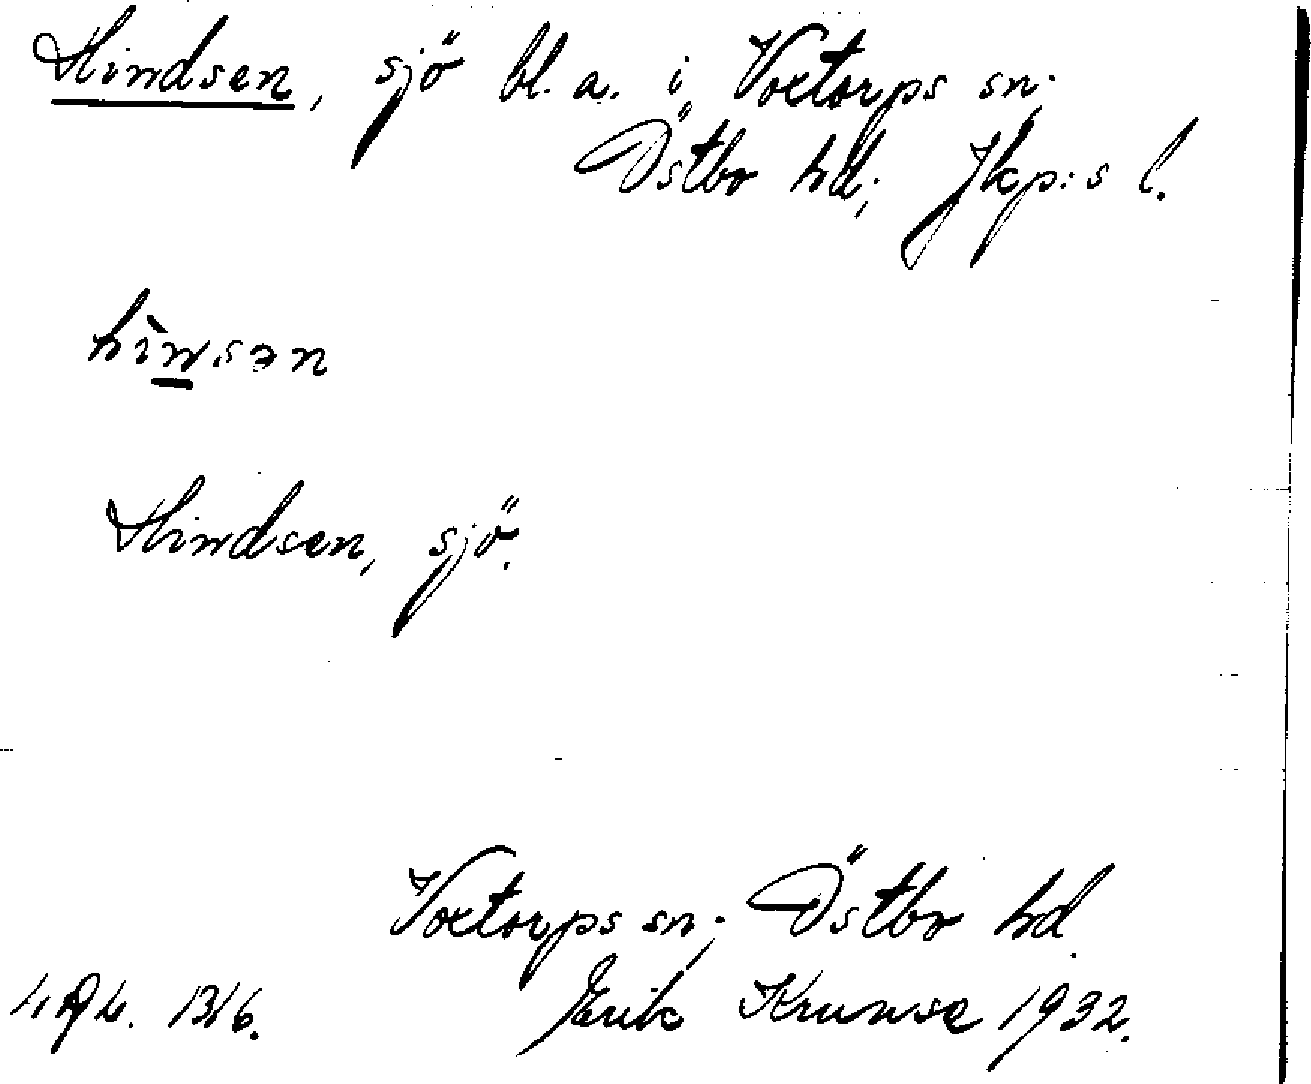 Hindsen, sjö bl. a. i Voxtorps sn;
Östbo hd; Jkp:s l.
hìnsən
Hindsen, sjö.
Voxtorps sn; Östbo hd.
Erik Krunse 1932.